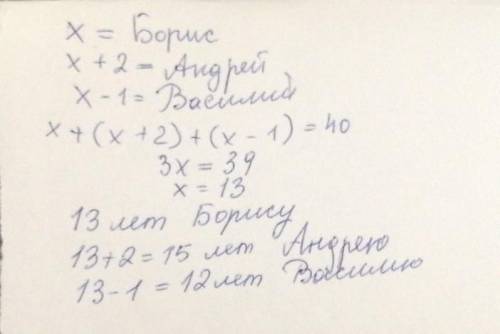 x = Борис
x + 2 = Андрей
x - 1 = Василий
x + (x + 2) + (x - 1) = 40
3x = 39
x = 13
13 лет Борису
13 + 2 = 15 лет Андрею
13 - 1 = 12 лет Василию